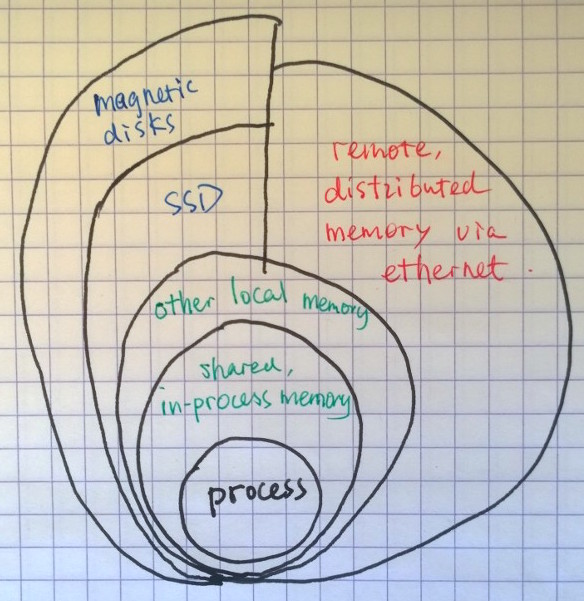 magnetic
disks
SSD
remote,
distributed
memory via
ethernet.
other local memory
shared,
in-process memory
process